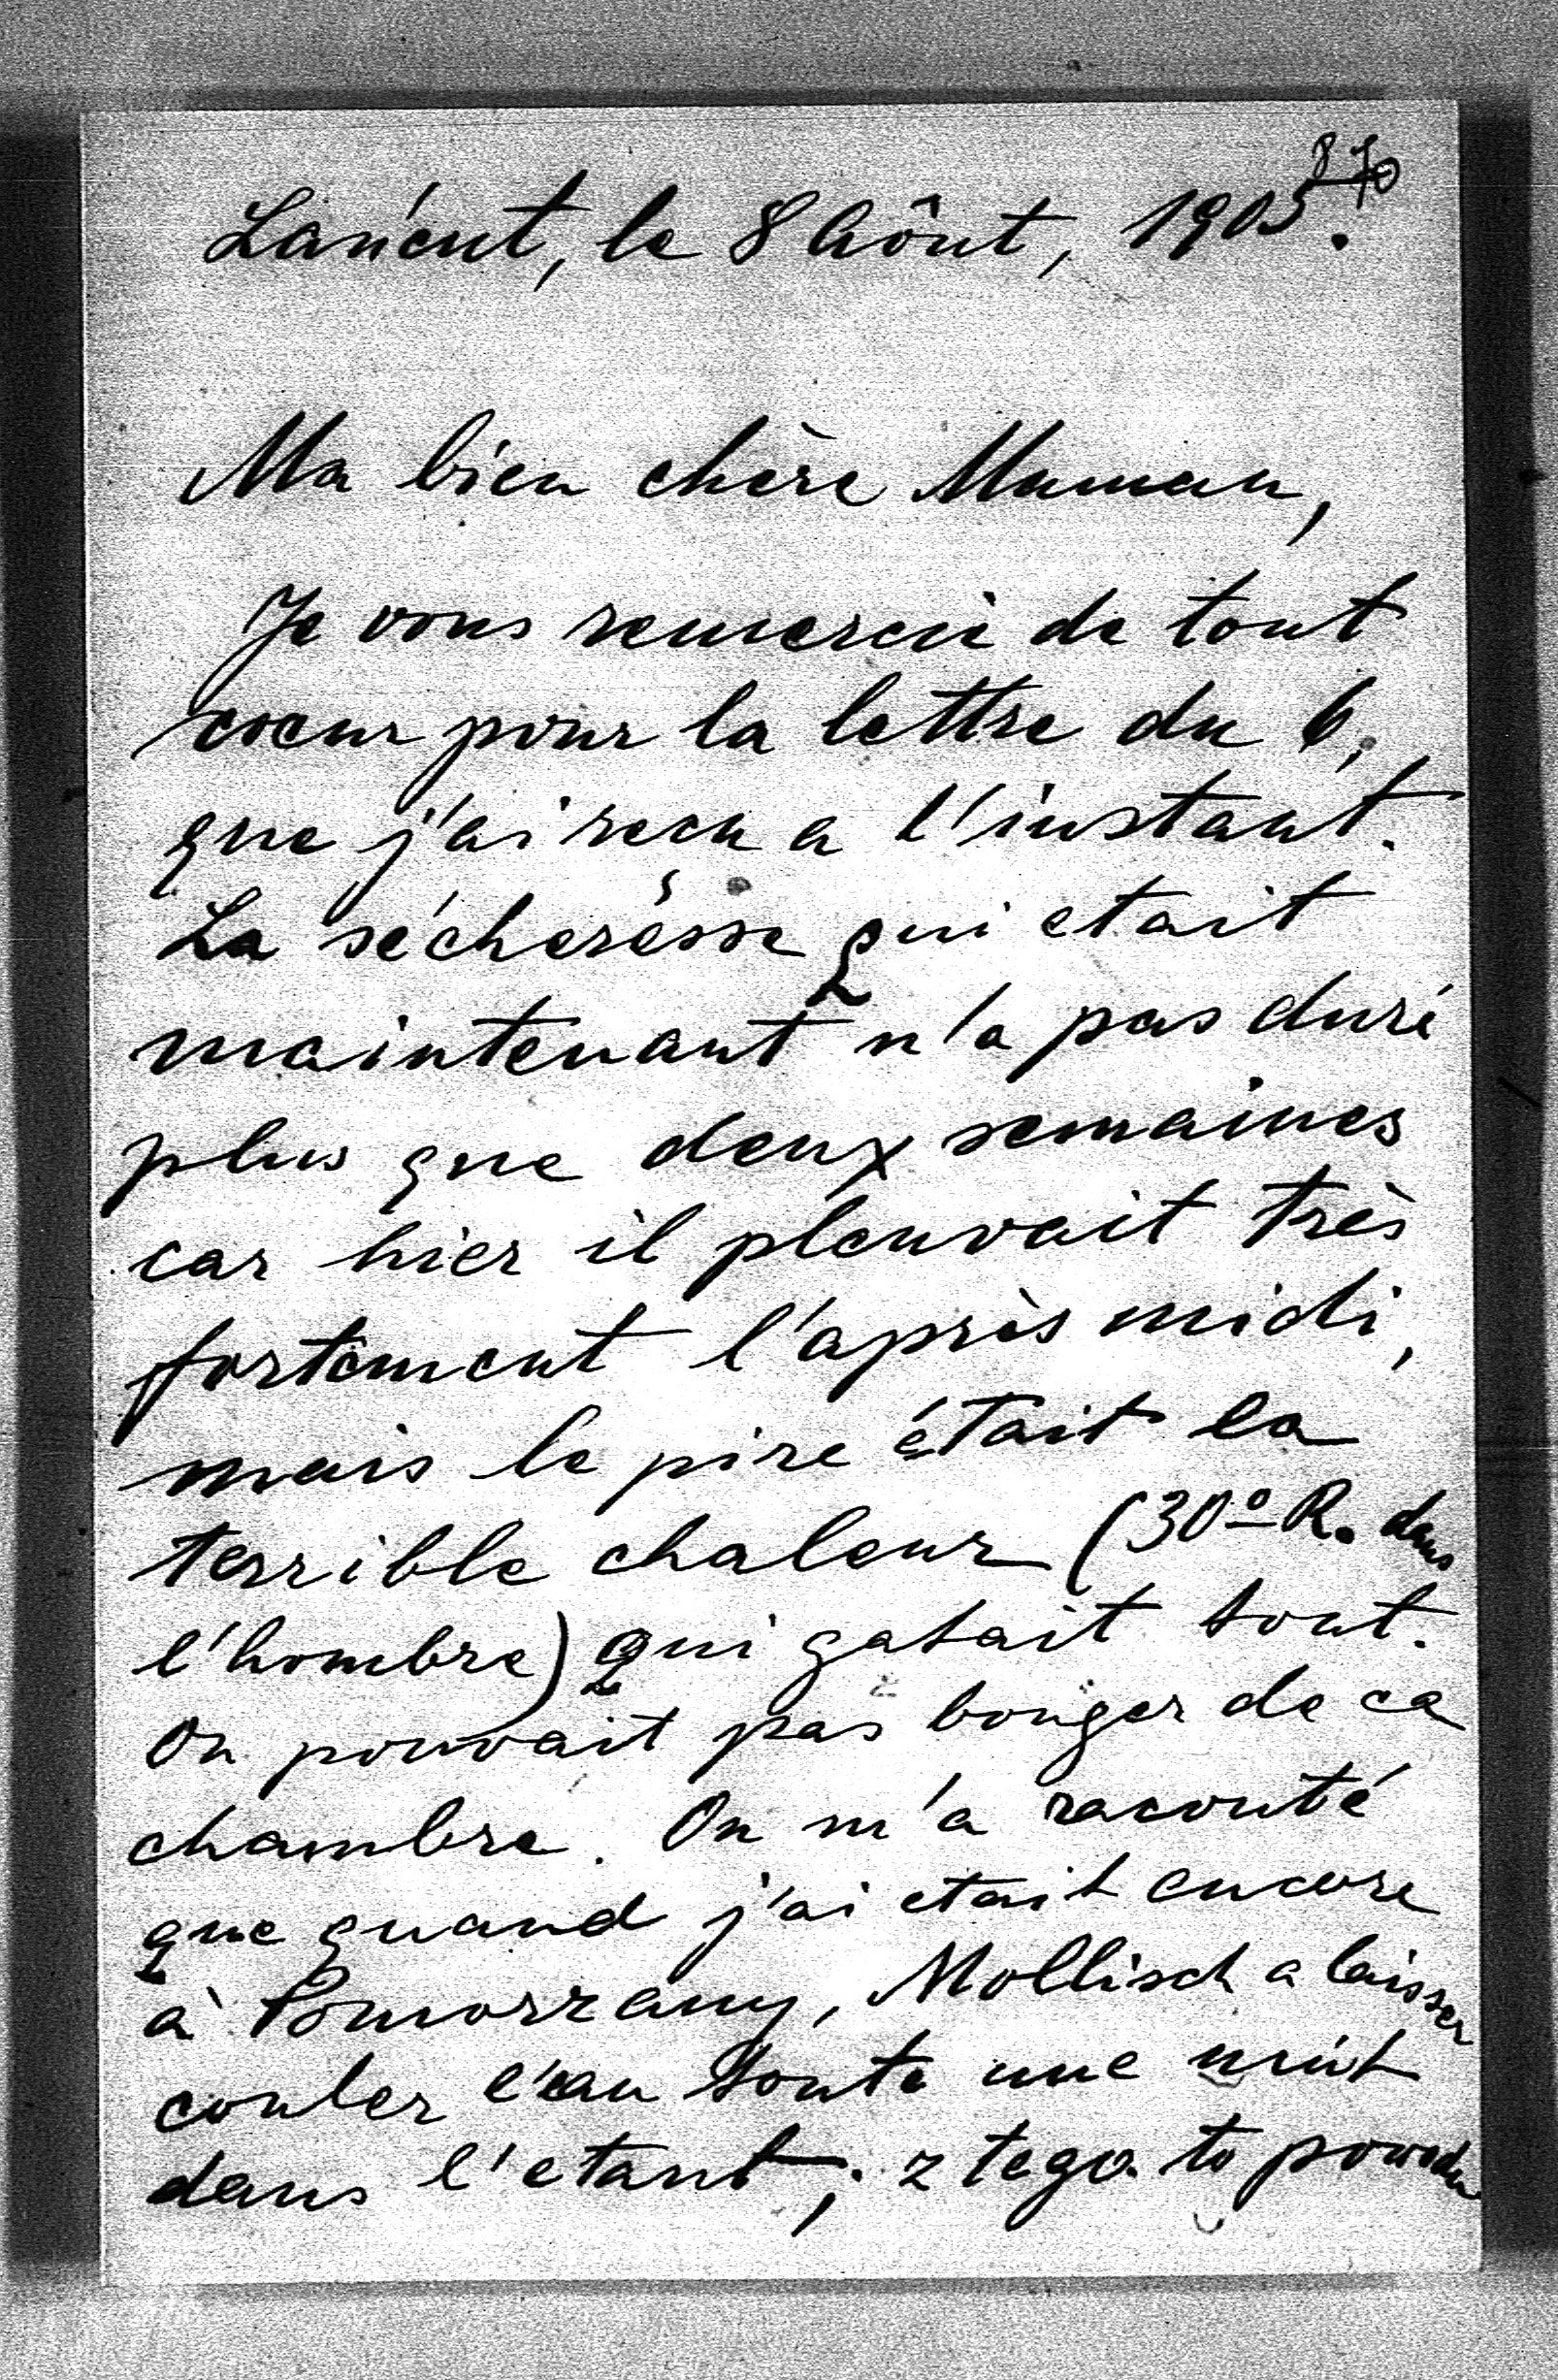 870
Łańcut, le 8 Aôut, 1905.
Ma bien chère Maman,
Je vous remercie de tout
coeur pour la lettre du 6,
que j'ai recu a l'instant.
La sécheresse qui etait
maintenant n'a pas duré
plus que deux semaines
car hier il pleuvait très
fortement l'après midi,
mais le pire était la
terrible chaleur (30º R. dans
l'hombre) qui gatait tout.
On pouvait pas bouger de ca
chambre. On m'a raconté
que quand j'ai etait encore
à Pomorzany, Mollisch a laisser
couler l'eau toute une nuit
dans l'etant; z tego to powodu